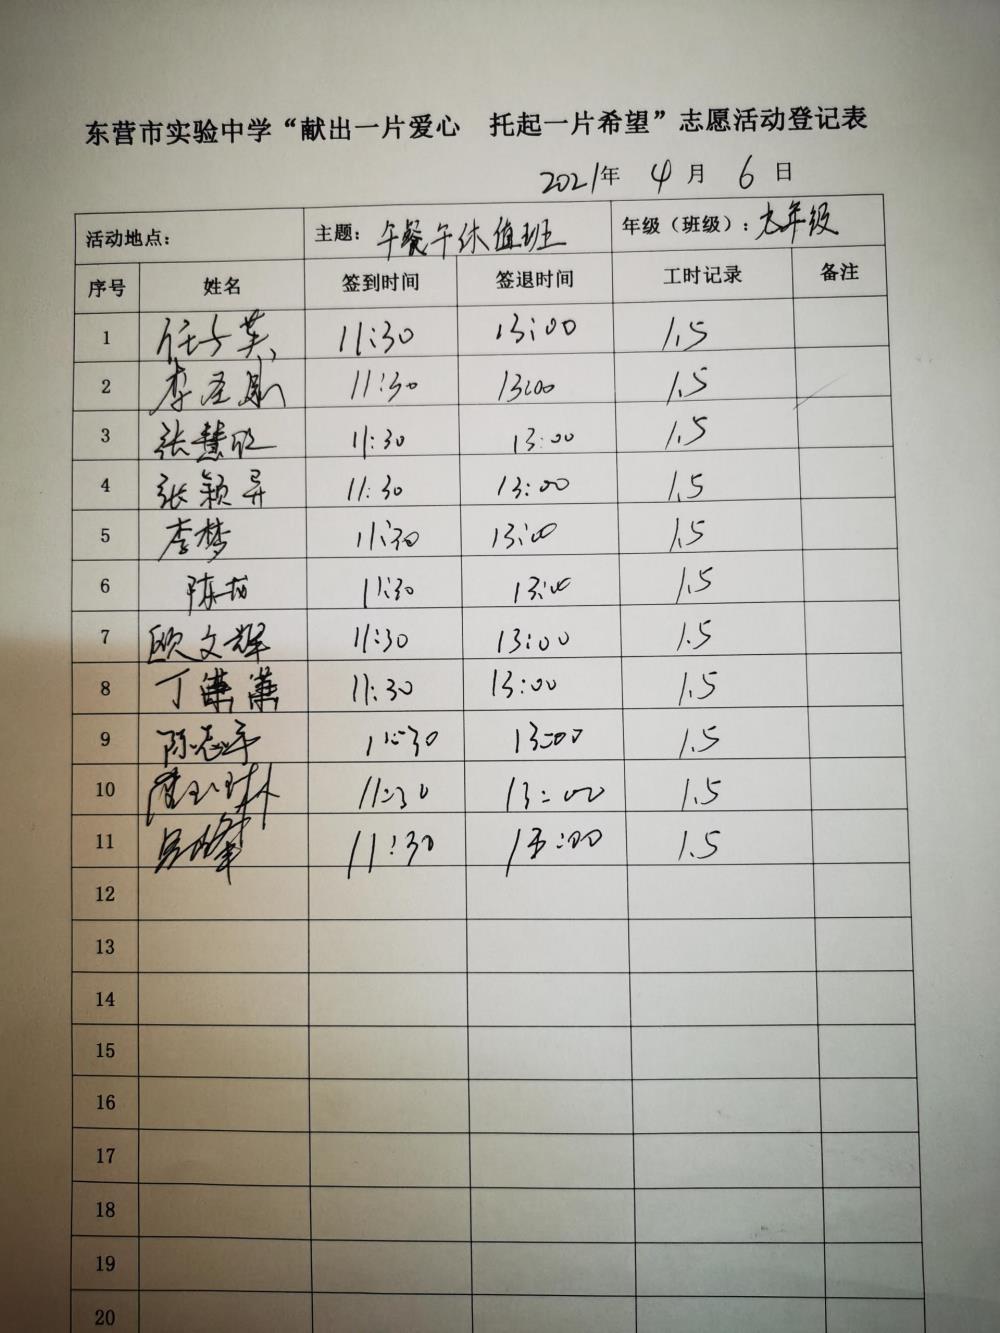 东营市实验中学“献出一片爱心 托起一片希望”志愿活动登记表
2021年 4 月 6 日
活动地点: 主题: 午餐午休值班 年级（班级）: 九年级
序号 姓名 签到时间 签退时间 工时记录 备注
1 任子英 11:30 13:00 1.5
2 李圣 11:30 13:00 1.5
3 张慧欣 11:30 13:00 1.5
4 张颖异 11:30 13:00 1.5
5 李梦 11:30 13:00 1.5
6 陈 11:30 13:00 1.5
7 欧文辉 11:30 13:00 1.5
8 丁潇潇 11:30 13:00 1.5
9 陈志平 11:30 13:00 1.5
10 11:30 13:00 1.5
11 11:30 13:00 1.5
12
13
14
15
16
17
18
19
20